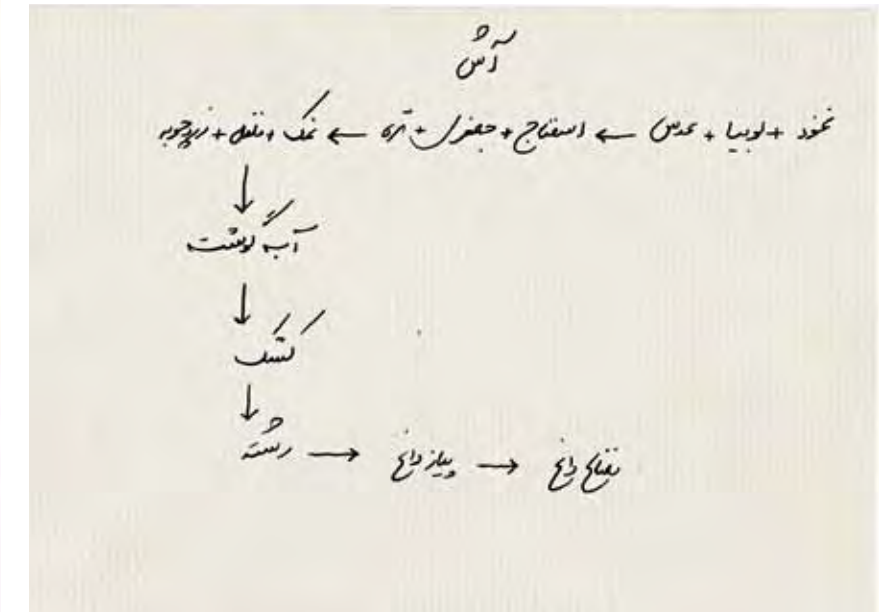 آش
نخود + لوبیا + عدس ← اسفناج + جعفری + تره ← نمک + فلفل + زردچوبه
↓
آب گوشت
↓
کشک
↓
رشته → پیاز داغ → نعناع داغ